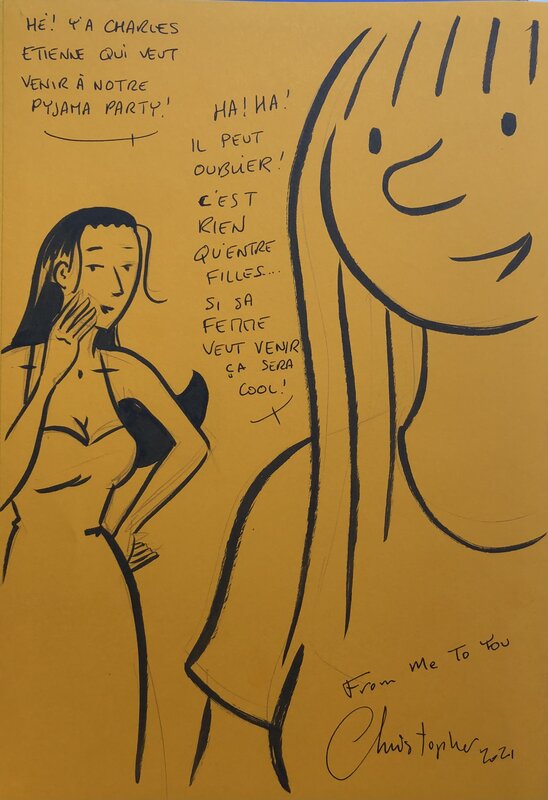 HÉ! Y'A CHARLES
ETIENNE QUI VEUT
VENIR À NOTRE
PYJAMA PARTY!
HA! HA!
IL PEUT
OUBLIER!
C'EST
RIEN
QU'ENTRE
FILLES...
SI SA
FEMME
VEUT VENIR
ÇA SERA
COOL!
From Me To You
Christopher 2021